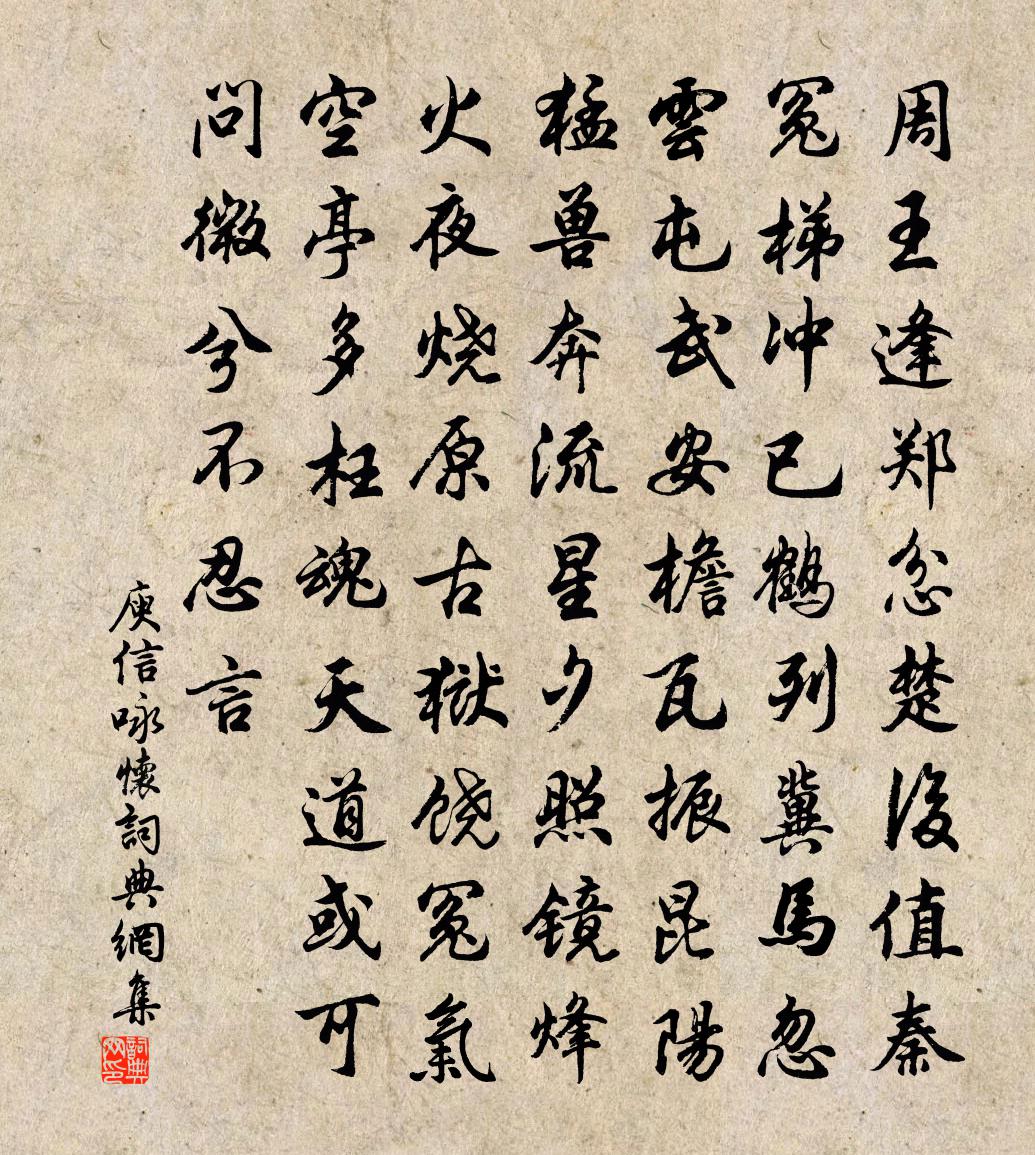 周王逢郑忿楚後值秦
冤梯冲已鹤列冀馬忽
雲屯武安檐瓦振昆陽
猛兽奔流星夕照镜烽
火夜烧原古獄饶冤氣
空亭多枉魂天道或可
问微兮不忍言
庾信咏懷詞典網集
詞典网印